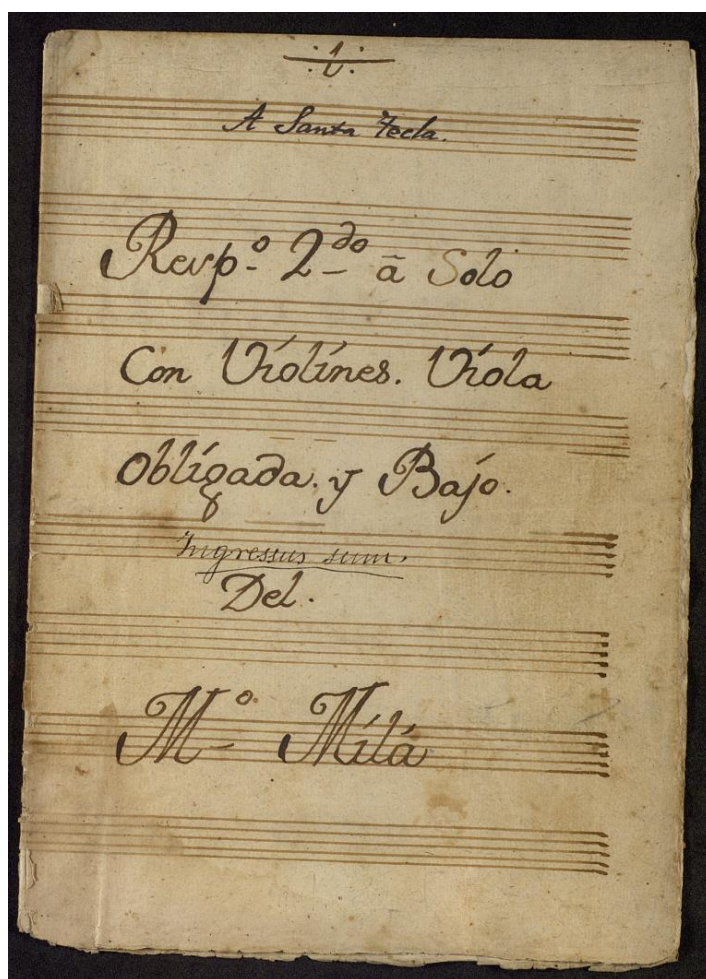 .1.
A Santa Tecla.
Resp.º 2.do ã Solo
Con Violínes. Víola
Oblígada. y Bajo.
Ingressus sum.
Del.
M.º Mílá